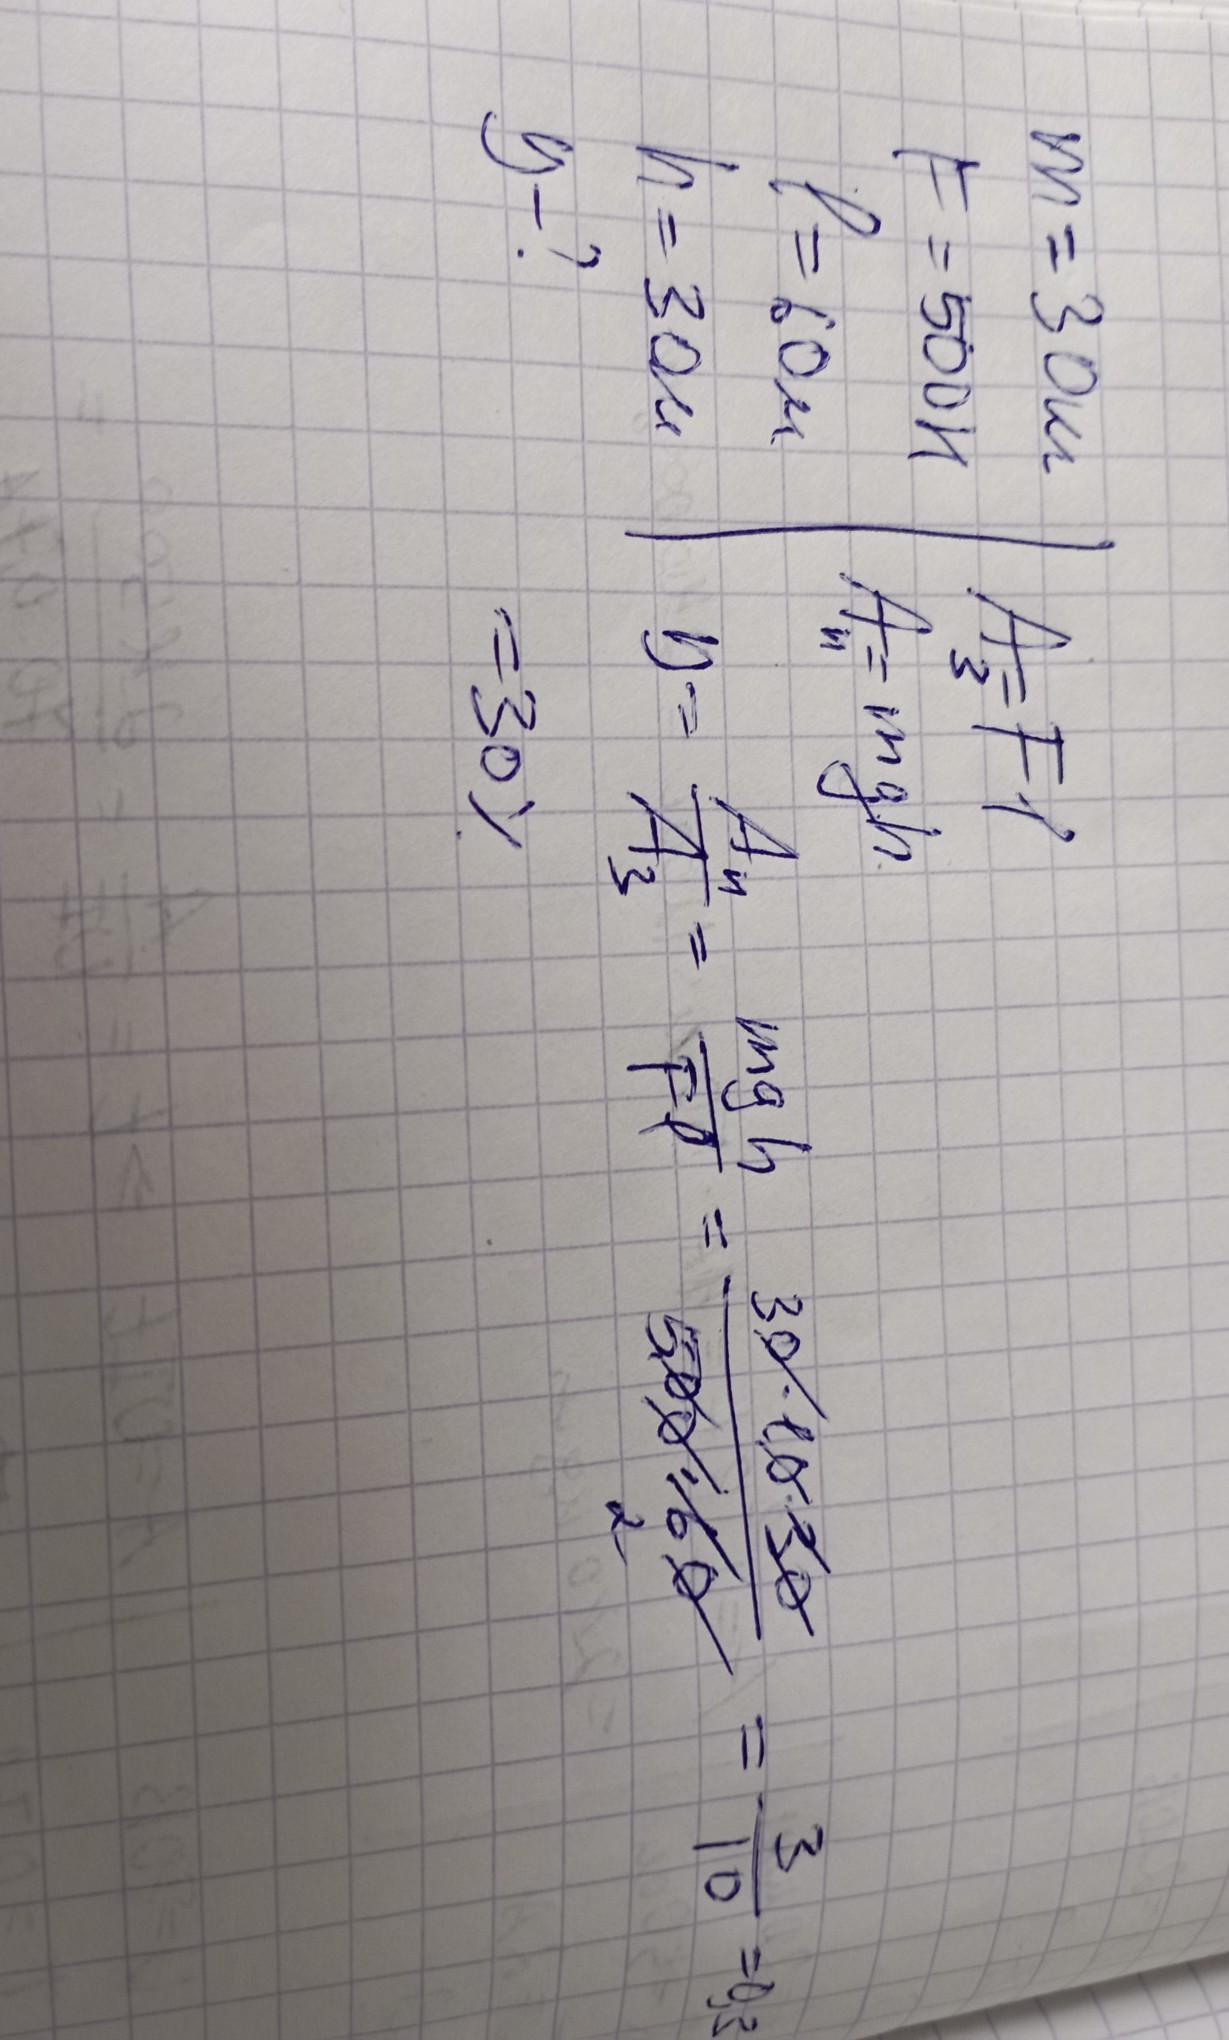 m = 30м
F = 500Н
l = 60м
h = 30м
η - ?
Aз = Fl
Aп = mgh
η = Aп/Aз = mgh/Fl = 30·10·30/500·60 2 = 3/10 = 0,3
= 30%